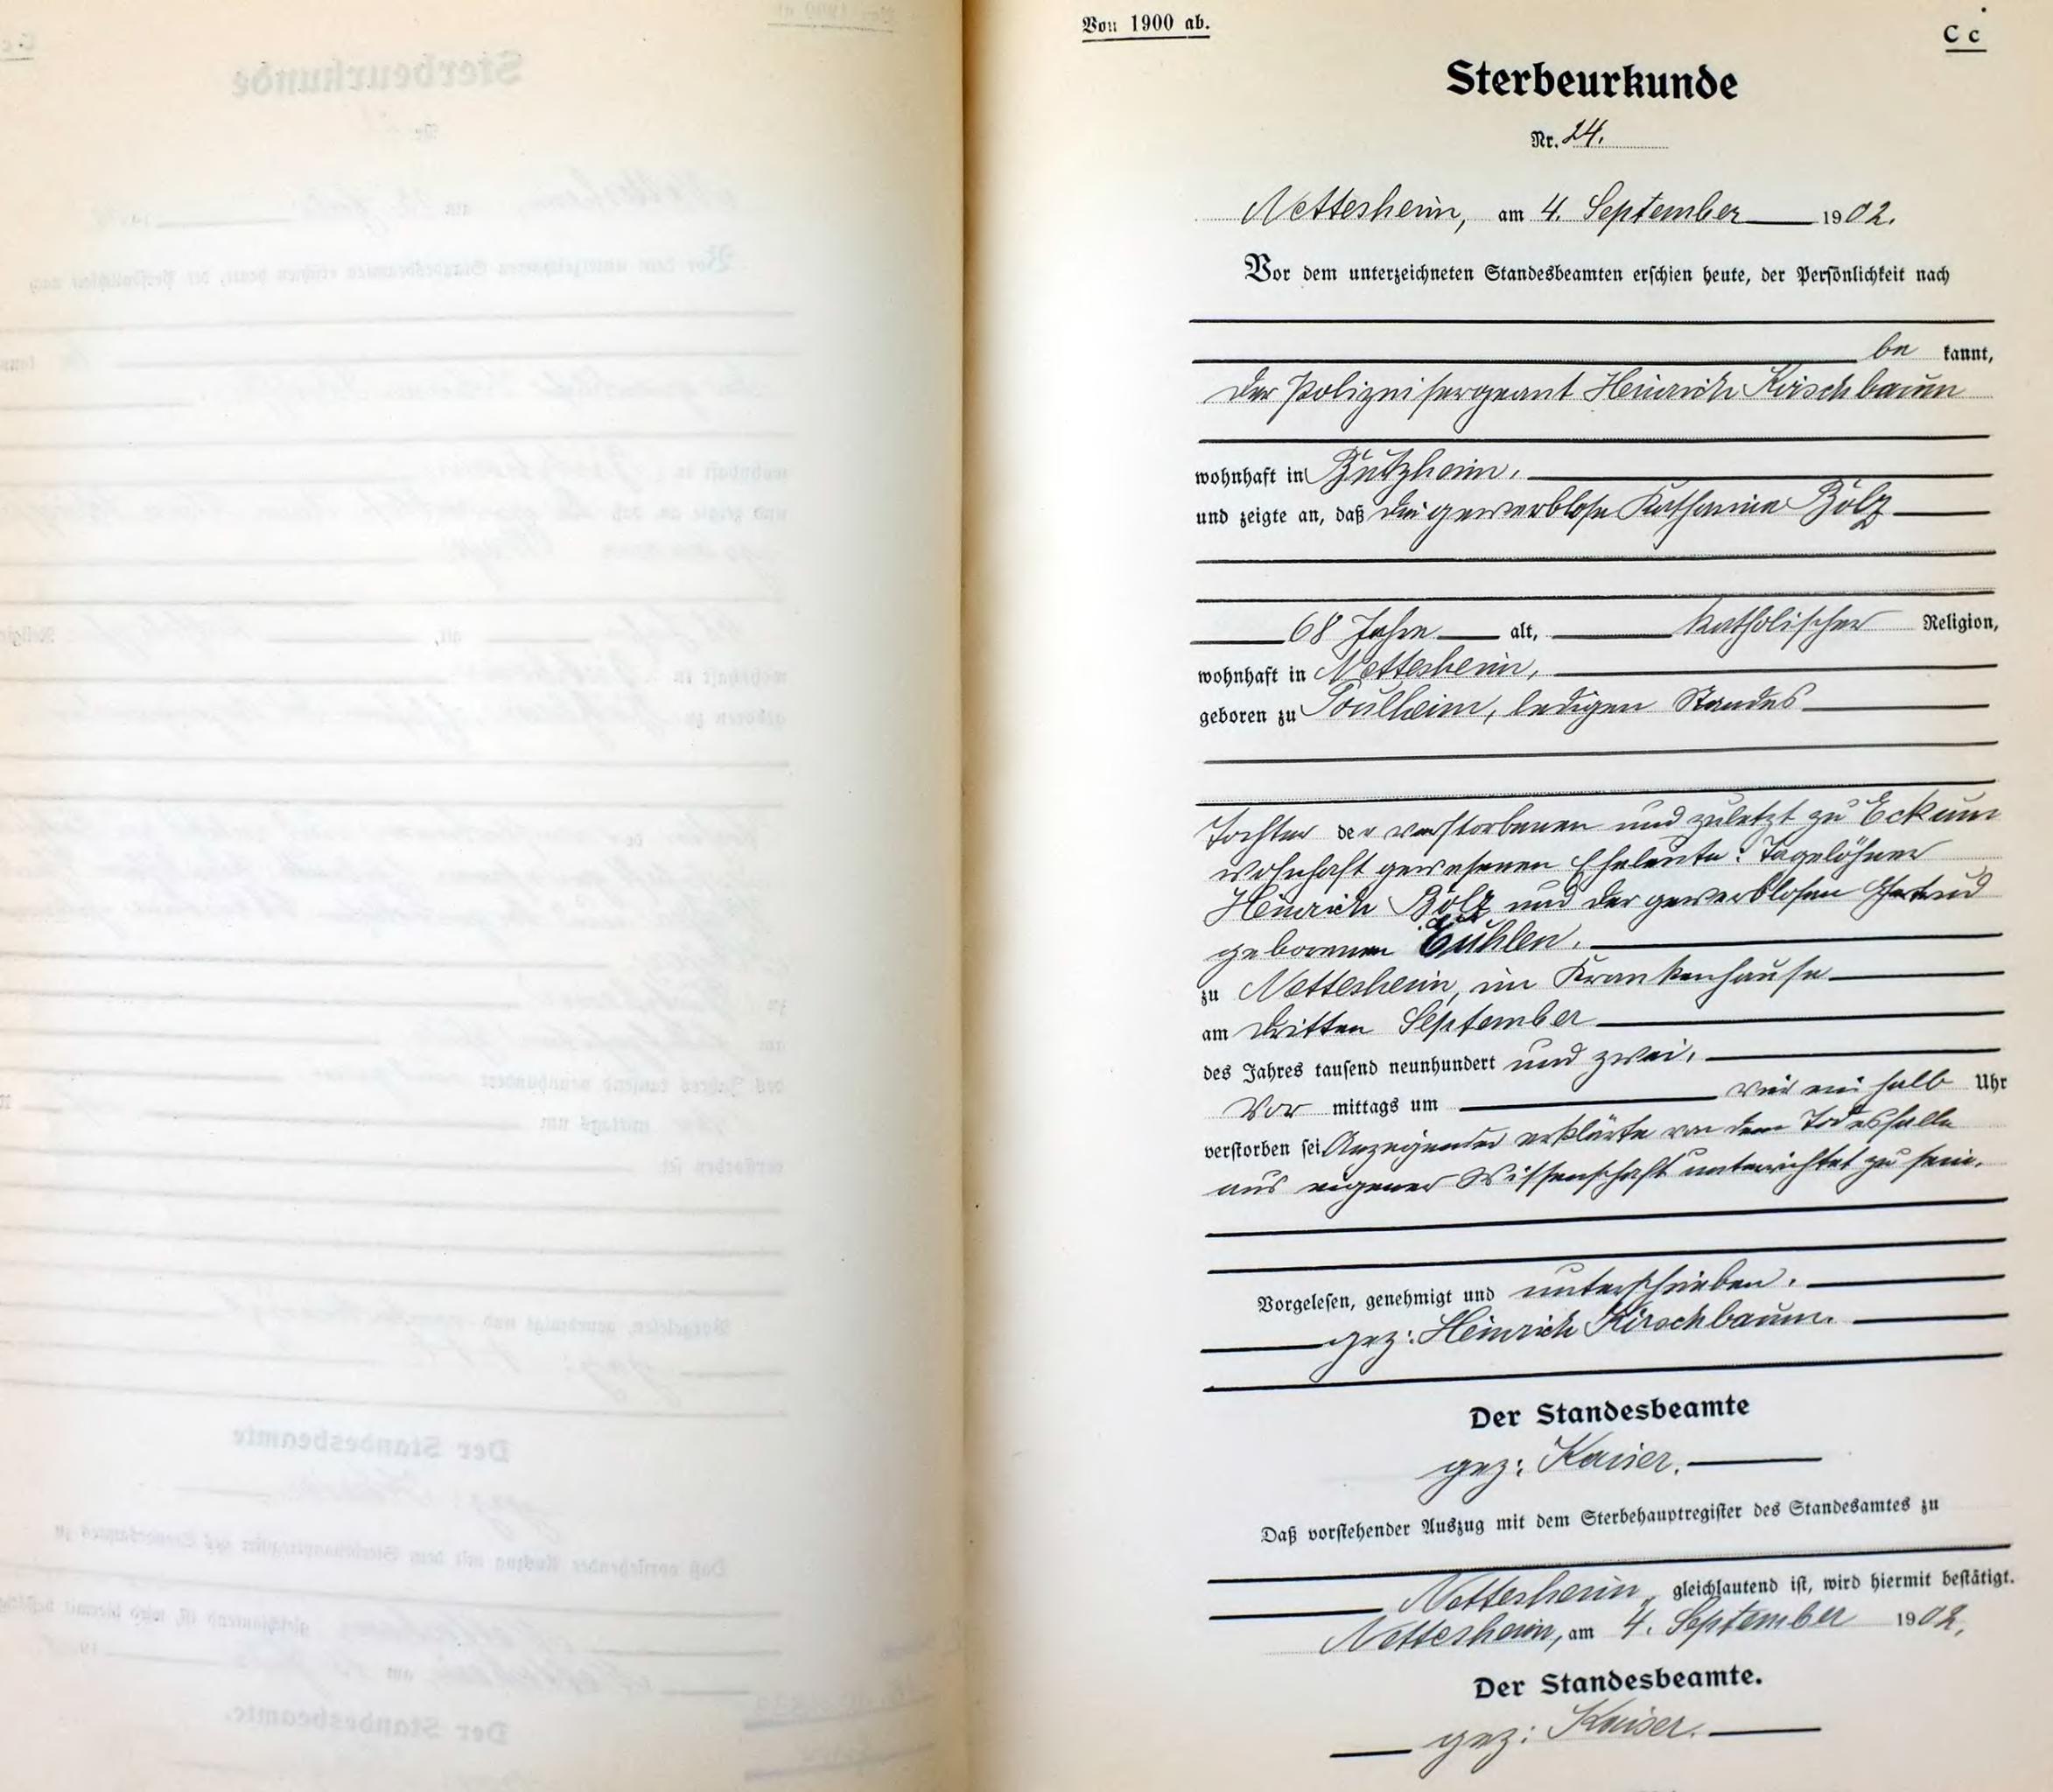 Von 1900 ab.
C c
Sterbeurkunde
Nr. 24.
Nettesheim, am 4. September 1902.
Vor dem unterzeichneten Standesbeamten erschien heute, der Persönlichkeit nach
be kannt,
der Polizeisergeant Heinrich Kirschbaum
wohnhaft in Bützheim.
und zeigte an, daß die gewerblose Katharina Bolz
68 Jahre alt, katholischer Religion,
wohnhaft in Nettesheim,
geboren zu Poulheim, ledigen Standes
Tochter der verstorbenen und zuletzt zu Eckum
wohnhaft gewesenen Eheleute: Tagelöhner
Heinrich Bolz und der gewerblosen Gertrud
geborenen
zu Nettesheim, im Krankenhause
am dritten September
des Jahres tausend neunhundert und zwei,
Vor mittags um vier ein halb Uhr
verstorben sei. Anzeigender erklärte von dem Todesfalle
aus eigener Wissenschaft unterrichtet zu sein.
Vorgelesen, genehmigt und unterschrieben.
gez: Heinrich Kirschbaum.
Der Standesbeamte
gez: Kaiser.
Daß vorstehender Auszug mit dem Sterbehauptregister des Standesamtes zu
Nettesheim gleichlautend ist, wird hiermit bestätigt.
Nettesheim, am 4. September 1902.
Der Standesbeamte.
gez: Kaiser.